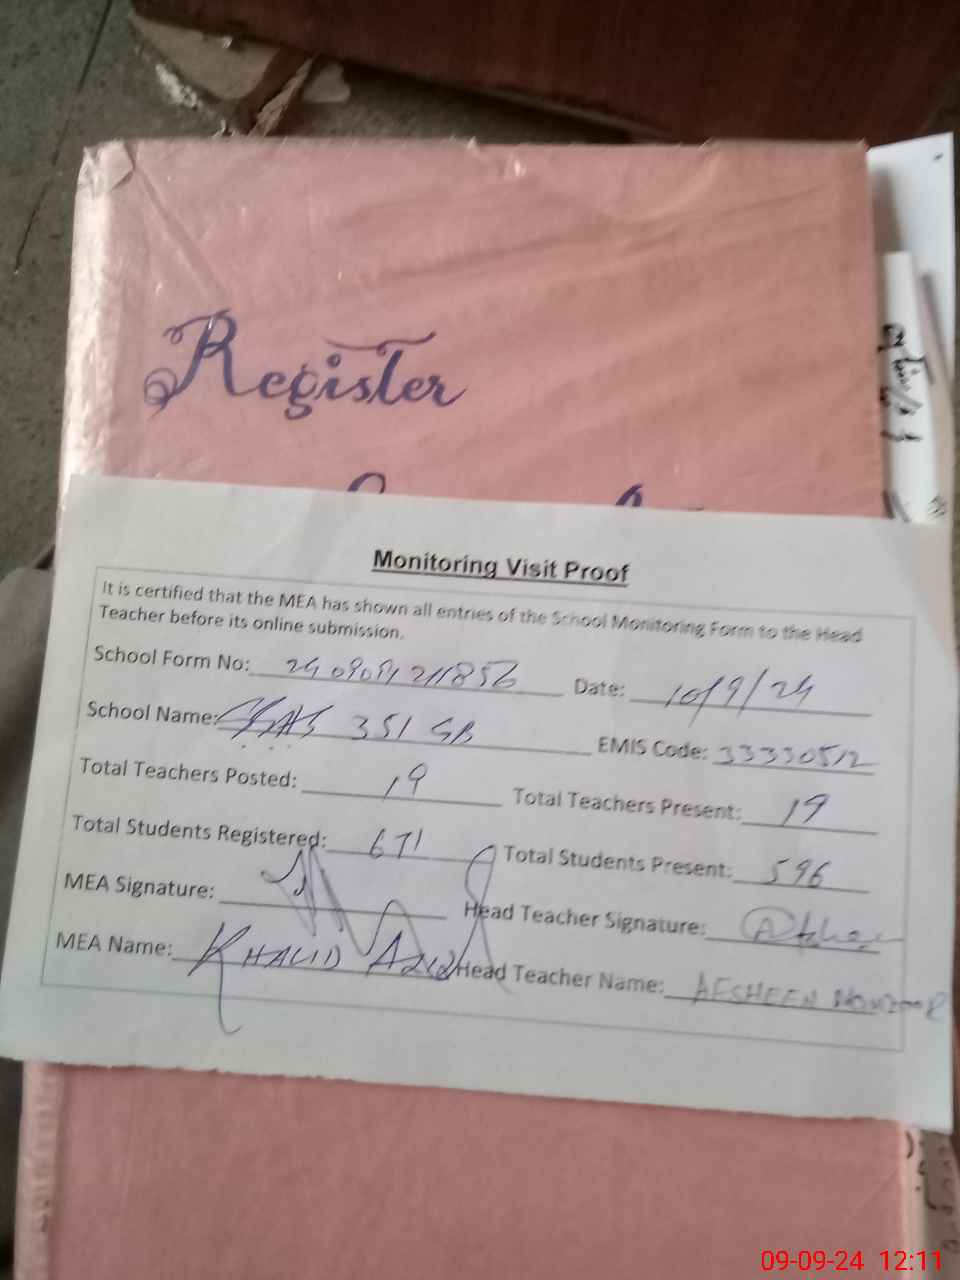 Register
Monitoring Visit Proof
It is certified that the MEA has shown all entries of the School Monitoring Form to the Head
Teacher before its online submission.
School Form No: Date: 10/9/24
School Name: 351 GB EMIS Code: 33330512
Total Teachers Posted: 19 Total Teachers Present: 19
Total Students Registered: 671 Total Students Present: 596
MEA Signature: Head Teacher Signature:
MEA Name: KHALID Head Teacher Name: AFSHEEN
09-09-24 12:11